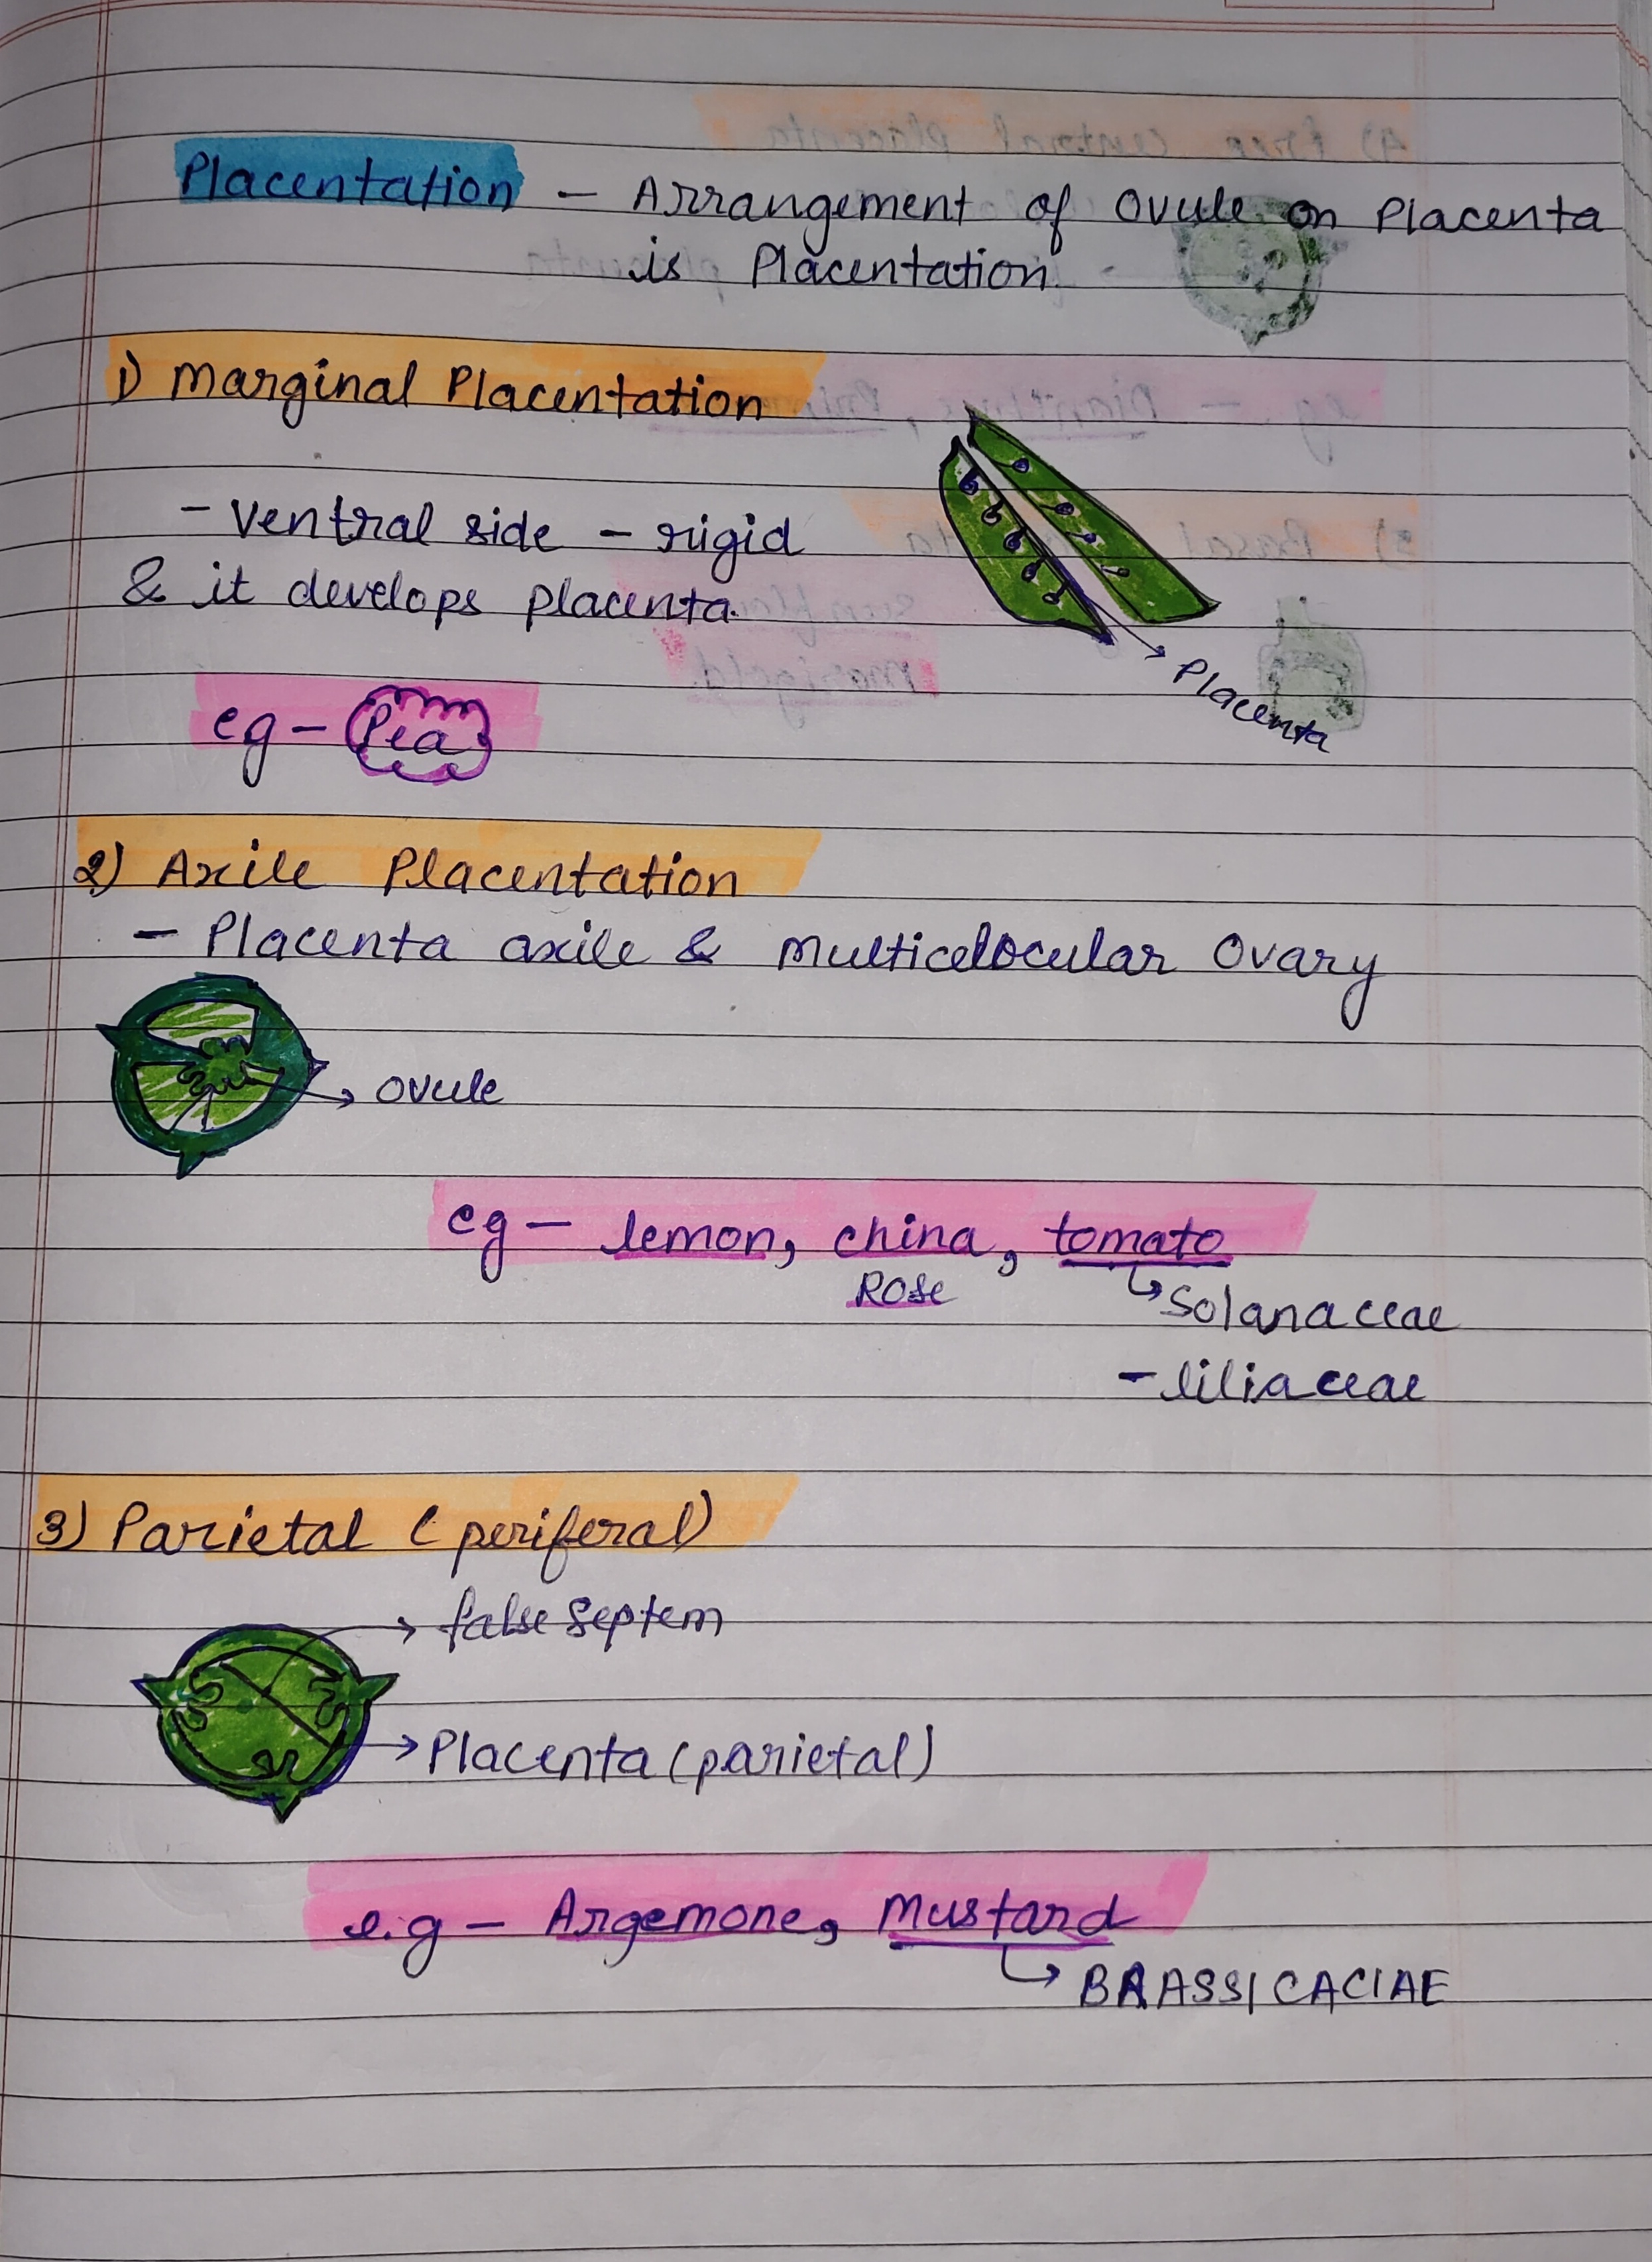 Placentation - Arrangement of Ovule on Placenta
is Placentation.
1) Marginal Placentation
- Ventral side - rigid
& it develops placenta.
Placenta
eg - Pea
2) Axile Placentation
- Placenta axile & Multicelocular Ovary
Ovule
eg - lemon, china, tomato
Rose
Solanaceae
- liliaceae
3) Parietal (periferal)
false Septem
Placenta (parietal)
e.g - Argemone, Mustard
BRASSICACIAE